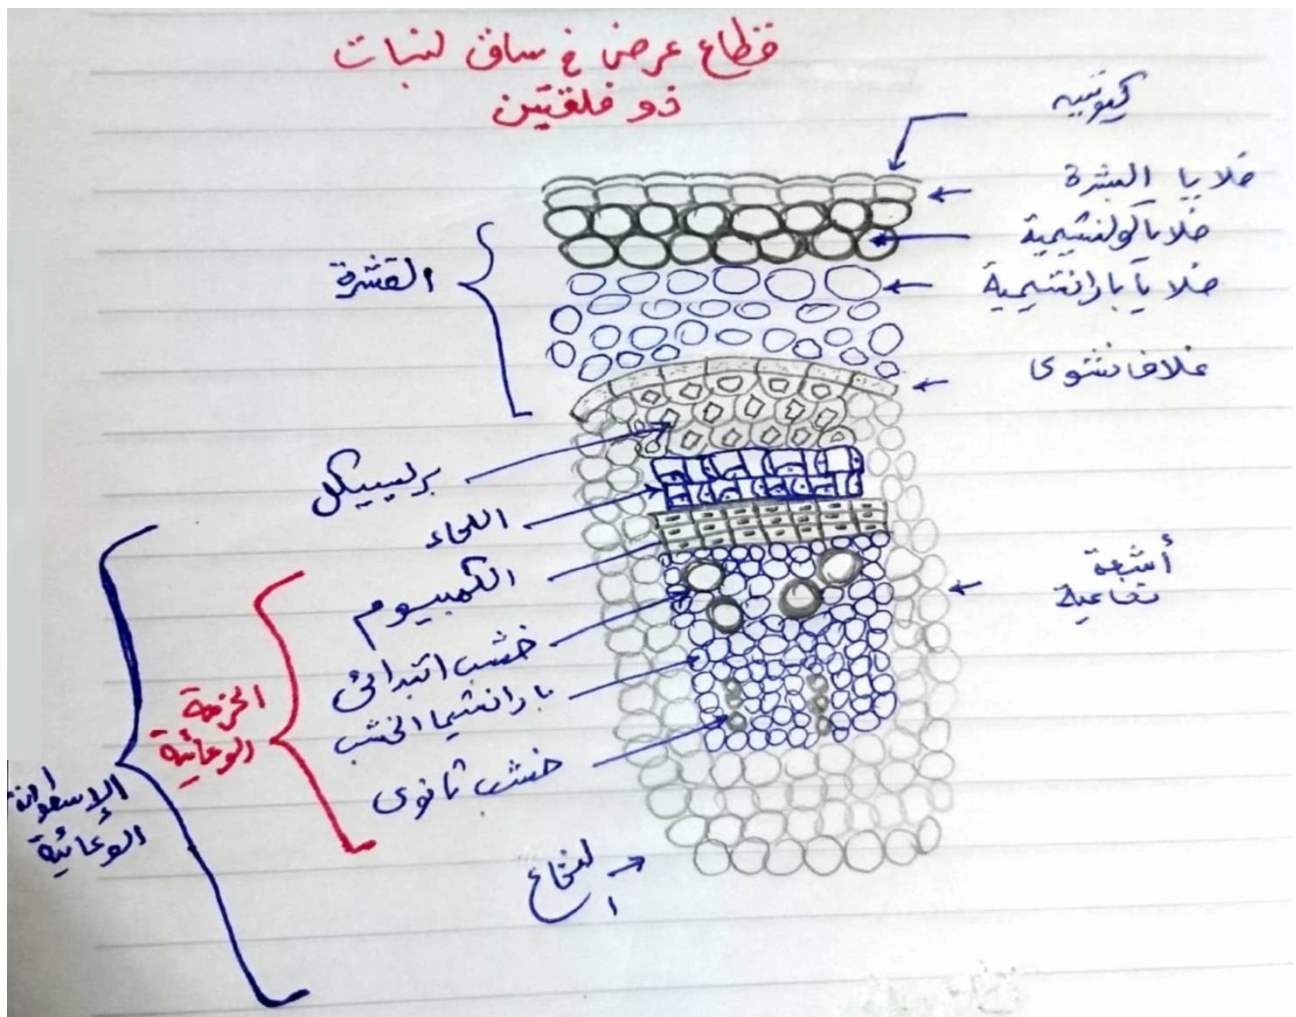 قطاع عرضى في ساق لنبات
ذو فلقتين
كيوتيه
خلايا البشرة
خلايا كولنشيمية
خلايا بارانشيمية
غلاف نشوى
القشرة
بريسيكل
اللحاء
الكمبيوم
خشب ابتدائى
بارانشيما الخشب
خشب ثانوى
النخاع
أشعة
نخاعية
الحزمة
الوعائية
الإسطوانة
الوعائية